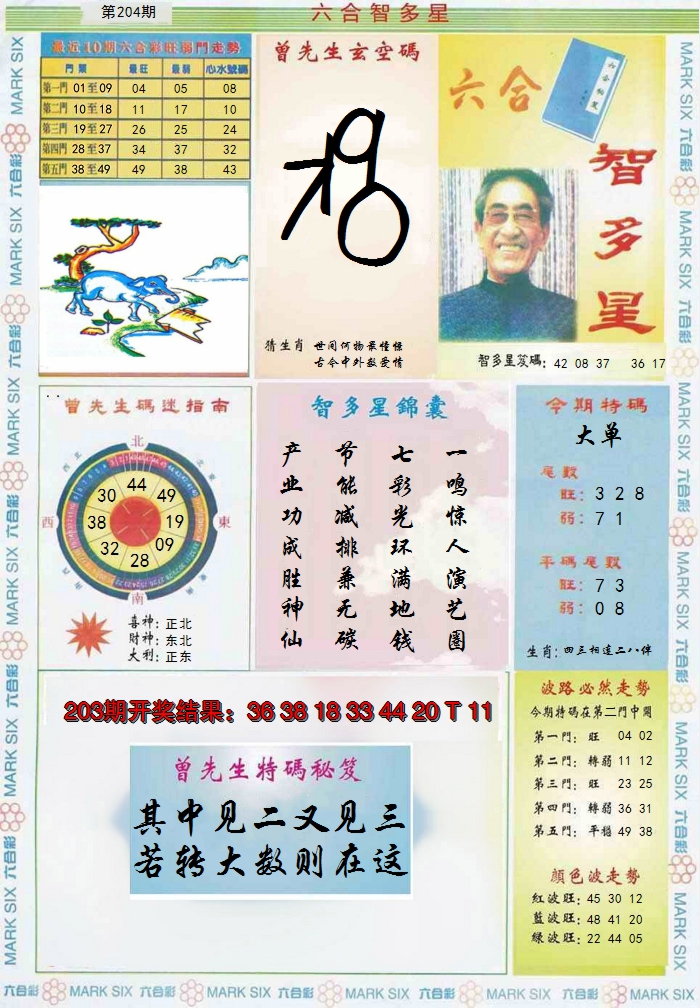 第204期
六合智多星
最近10期六合彩旺弱門走勢
門類 最旺 最弱 心水號碼
第一門 01至09 04 05 08
第二門 10至18 11 17 10
第三門 19至27 26 25 24
第四門 28至37 34 37 32
第五門 38至49 49 38 43
曾先生玄空碼
猜生肖 世间何物最憧憬
古今中外数爱情
六合
智多星
智多星笈碼: 42 08 37 36 17
曾先生碼迷指南
北
西北
東北
西
東
西南
東南
南
44
49
19
09
28
32
38
30
喜神: 正北
財神: 东北
大利: 正东
智多星錦囊
一鸣惊人演艺圈
七彩光环满地钱
节能减排兼无碳
产业功成胜神仙
今期特碼
大单
尾數
旺: 3 2 8
弱: 7 1
平碼尾數
旺: 7 3
弱: 0 8
生肖: 四三相連二八伴
203期开奖结果: 36 38 18 33 44 20 T 11
曾先生特碼秘笈
其中见二又见三
若转大数则在这
波路必然走勢
今期特碼在第二門中開
第一門: 旺 04 02
第二門: 轉弱 11 12
第三門: 旺 23 25
第四門: 轉弱 36 31
第五門: 平穩 49 38
顏色波走勢
紅波旺: 45 30 12
藍波旺: 48 41 20
绿波旺: 22 44 05
六合彩 MARK SIX 六合彩 MARK SIX 六合彩 MARK SIX 六合彩 MARK SIX 六合彩